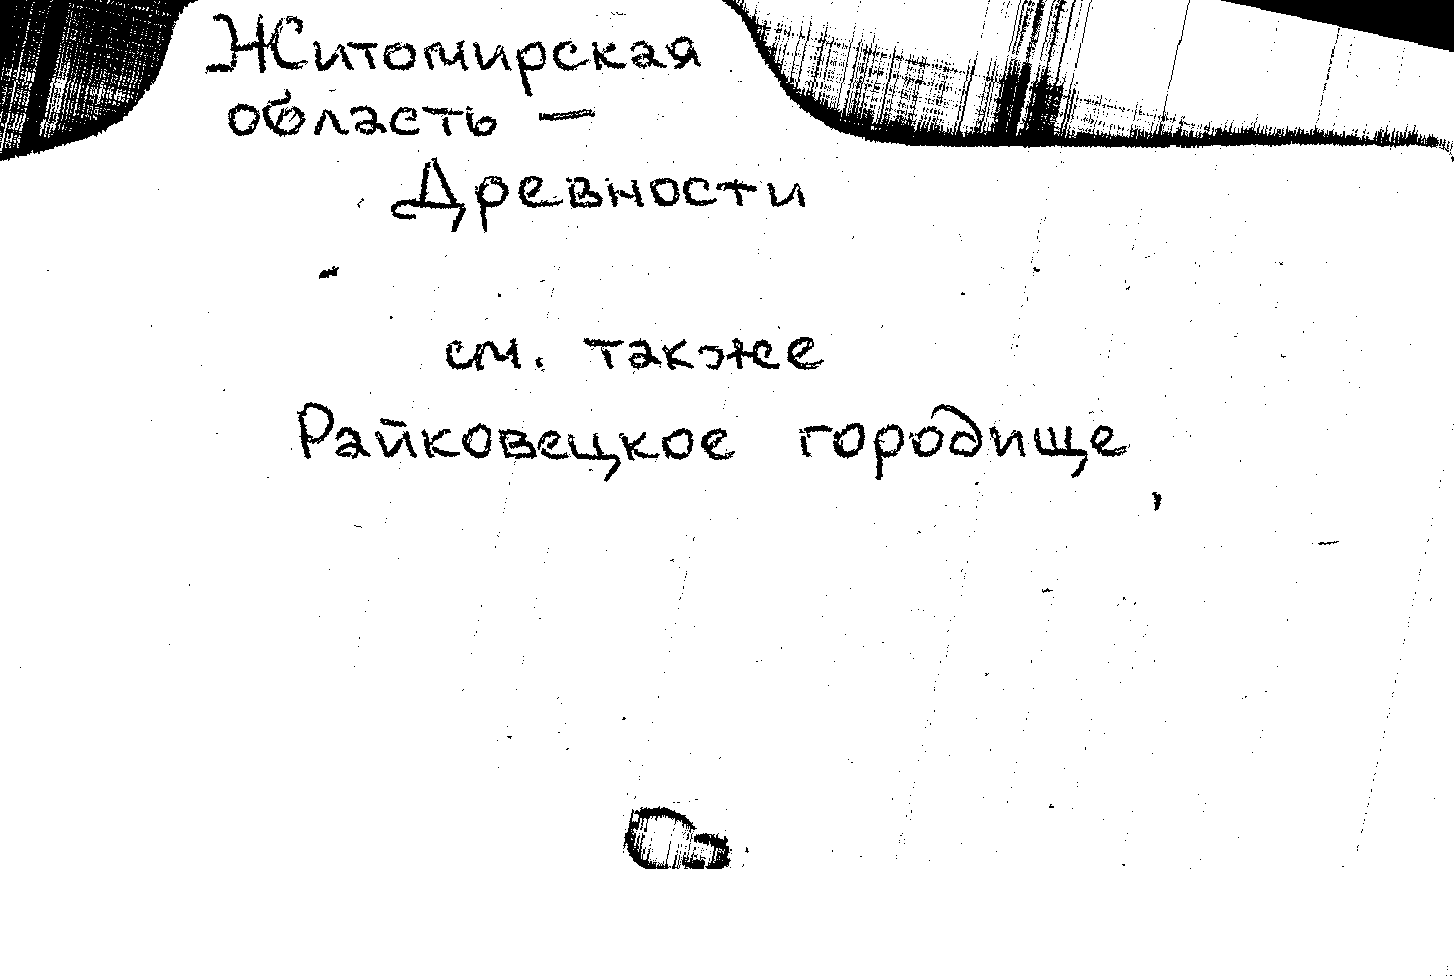 Житомирская
область —
Древности
см. также
Райковецкое городище